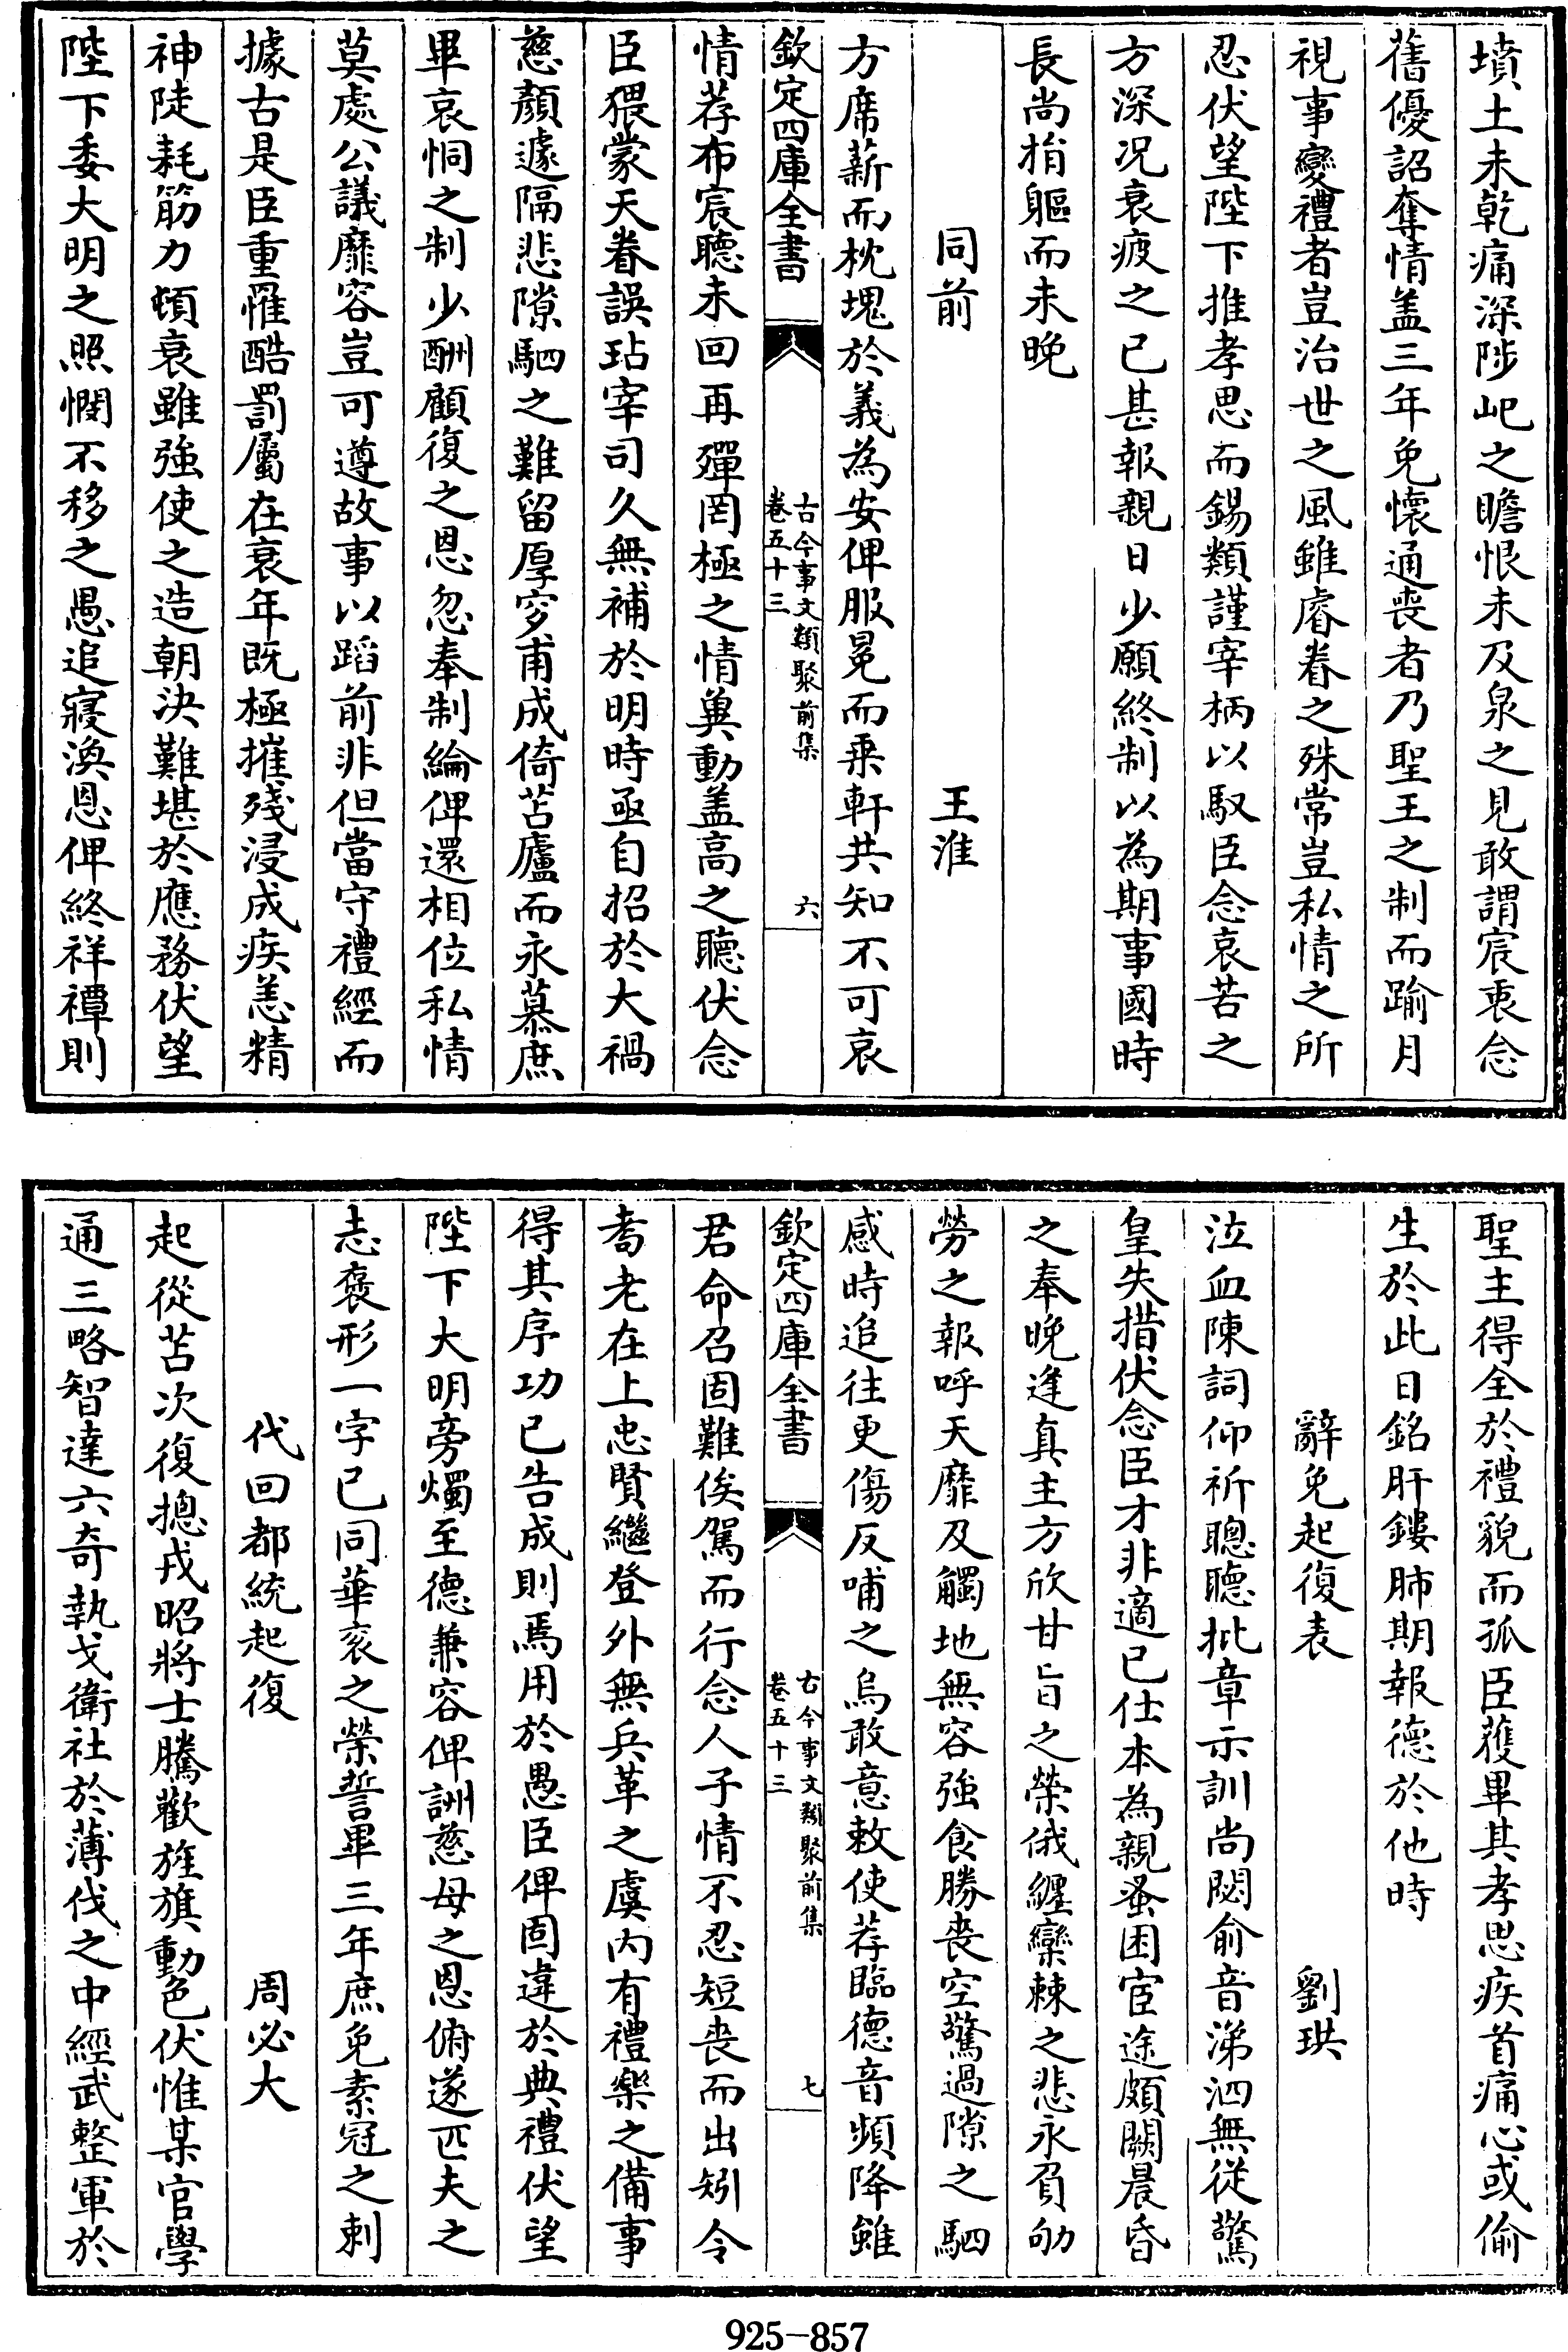 墳土未乾痛深陟屺之瞻恨未及泉之見敢謂宸衷念
舊優詔奪情盖三年免懷通喪者乃聖王之制而踰月
視事變禮者豈治世之風雖睿眷之殊常豈私情之所
忍伏望陛下推孝思而錫類謹宰柄以馭臣念哀苦之
方深况衰疲之已甚報親日少願終制以為期事國時
長尚捐軀而未晚
同前　王淮
方席薪而枕塊於義為安俾服冕而乘軒共知不可哀
欽定四庫全書　古今事文類聚前集卷五十三　六
情荐布宸聽未回再殫罔極之情冀動盖高之聽伏念
臣猥蒙天眷誤玷宰司久無補於明時亟自招於大禍
慈顏遽隔悲隙駟之難留厚穸甫成倚苫廬而永慕庶
畢哀恫之制少酬顧復之恩忽奉制綸俾還相位私情
莫處公議靡容豈可遵故事以蹈前非但當守禮經而
據古是臣重罹酷罰屬在衰年既極摧殘浸成疾恙精
神陡耗筋力頓衰雖強使之造朝決難堪於應務伏望
陛下委大明之照憫不移之愚追寢渙恩俾終祥禫則
聖主得全於禮貌而孤臣獲畢其孝思疾首痛心或偷
生於此日銘肝鏤肺期報德於他時
辭免起復表　劉珙
泣血陳詞仰祈聰聽批章示訓尚閟俞音涕泗無從驚
皇失措伏念臣才非適已仕本為親蚤困宦途頗闕晨昏
之奉晚逢真主方欣甘旨之榮俄纏欒棘之悲永負劬
勞之報呼天靡及觸地無容強食勝喪空驚過隙之駟
感時追往更傷反哺之烏敢意敕使荐臨德音頻降雖
欽定四庫全書　古今事文類聚前集卷五十三　七
君命召固難俟駕而行念人子情不忍短喪而出矧今
耇老在上忠賢繼登外無兵革之虞内有禮樂之備事
得其序功已告成則焉用於愚臣俾固違於典禮伏望
陛下大明旁燭至德兼容俾詶慈母之恩俯遂匹夫之
志褒形一字已同華衮之榮誓畢三年庶免素冠之刺
代回都統起復　周必大
起從苫次復摠戎昭將士騰歡旌旗動色伏惟某官學
通三略智達六奇執戈衛社於薄伐之中經武整軍於
925-857